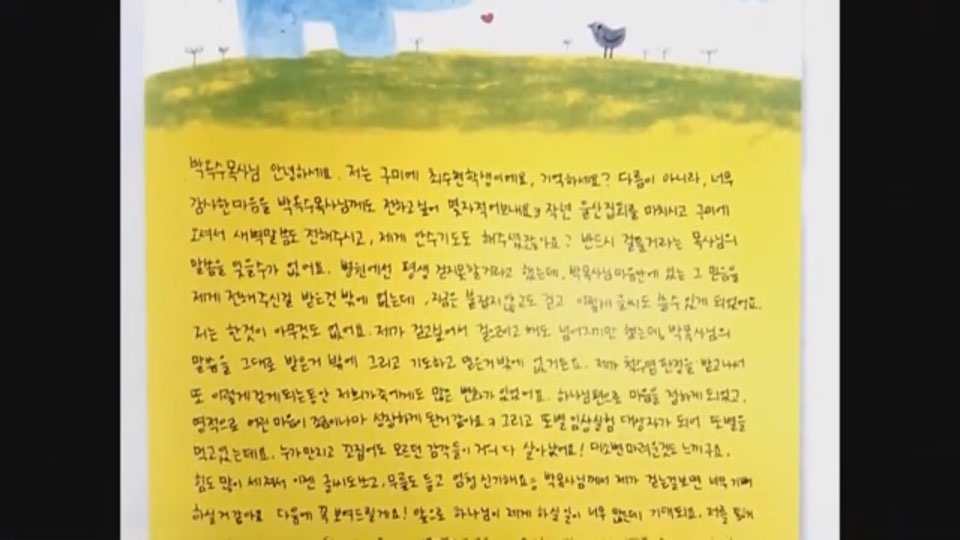 박옥수목사님 안녕하세요. 저는 구미에 최수현학생이에요, 기억하세요? 다름이 아니라, 너무
감사한마음을 박옥수목사님께도 전하고싶어 몇자적어보내요. 작년 울산집회를 마치시고 구미에
오셔서 새벽말씀도 전해주시고, 제게 안수기도도 해주셨잖아요? 반드시 걸을거라는 목사님의
말씀을 잊을수가 없어요. 병원에선 평생 걷지못할거라고 했는데, 박목사님마음안에 있는 그 믿음을
제게 전해주신걸 받는것 밖에 없는데, 지금은 붙잡지않고도 걷고 이렇게 글씨도 쓸수있게 되었어요.
저는 한것이 아무것도 없어요. 제가 걷고싶어서 걸으려고 해도 넘어지기만 했는데, 박목사님의
말씀을 그대로 받은거 밖에 그리고 기도하고 믿은거밖에 없거든요. 제가 척수염판정을 받고나서
또 이렇게걷게 되는동안 저희가족에게도 많은 변화가 있었어요. 하나님편으로 마음을 정하게되었고,
영적으로 어린 마음이 조금이나마 성장하게 된거같아요. 그리고 또별 임상실험 대상자가 되어 또별을
먹고있는데요, 누가만지고 꼬집어도 모르던 감각들이 거의 다 살아났어요! 대소변마려운것도 느끼구요,
힘도 많이 세져서 이젠 글씨도쓰고, 무릎도 들고 엄청신기해요. 박목사님께서 제가 걷는걸보면 너무기뻐
하실거같아요 다음에 꼭 보여드릴게요! 앞으로 하나님이 제게 하실일이 너무 많은데 기대되요. 저를 통해